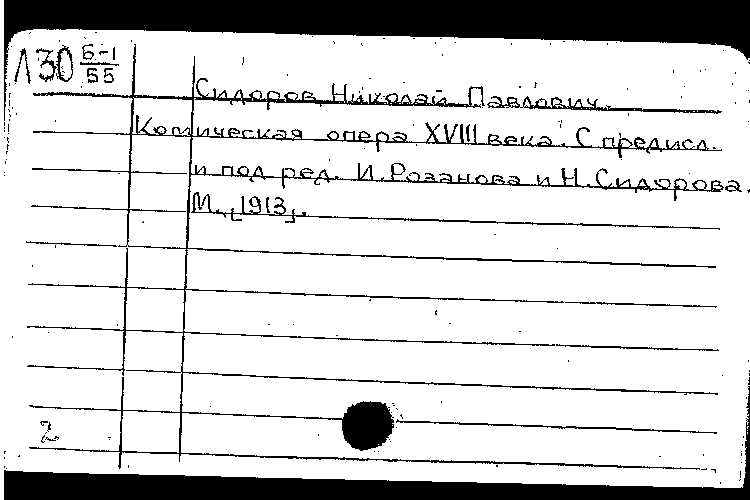 Л30 Б-1/55
Сидоров, Николай Павлович.
Комическая опера XVIII века. С предисл.
и под ред. И.Розанова и Н.Сидорова.
М., [1913].
2